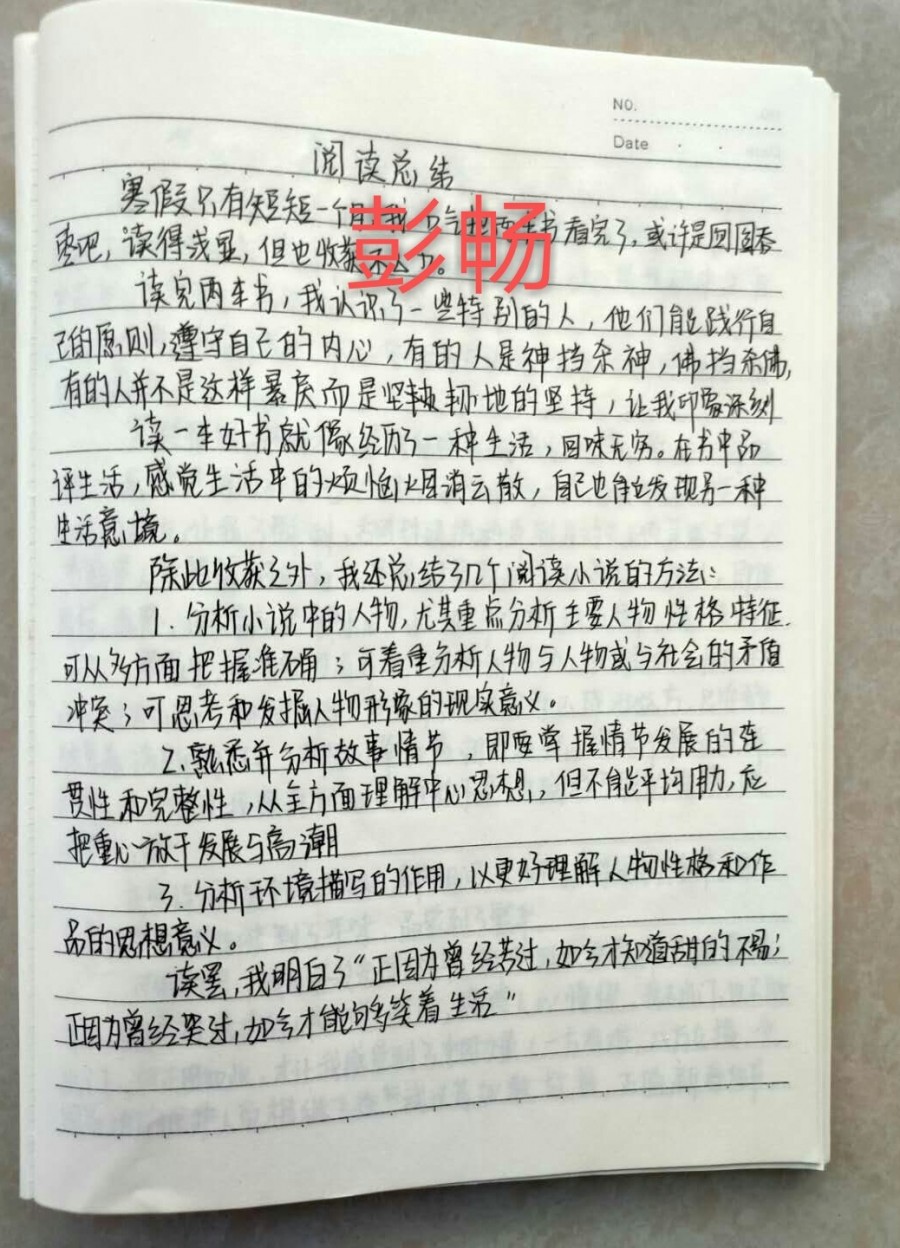 NO.
Date
阅读总结
寒假只有短短一个月,我一口气把两本书看完了,或许是囫囵吞
枣吧,读得浅显,但也收获不少。
彭畅
读完两本书,我认识了一些特别的人,他们能践行自
己的原则,遵守自己的内心,有的人是神挡杀神,佛挡杀佛,
有的人并不是这样暴戾而是坚持地的坚持,让我印象深刻
读一本好书就像经历了一种生活,回味无穷。在书中品
评生活,感觉生活中的烦恼烟消云散,自己也能发现另一种
生活意境。
除此收获之外,我还总结了几个阅读小说的方法:
1.分析小说中的人物,尤其重点分析主要人物性格特征.
可从多方面把握准确;可着重分析人物与人物或与社会的矛盾
冲突;可思考和发掘人物形象的现实意义。
2.熟悉并分析故事情节,即要掌握情节发展的连
贯性和完整性,从全方面理解中心思想,但不能平均用力,应
把重心放于发展与高潮
3.分析环境描写的作用,以更好理解人物性格和作
品的思想意义。
读罢,我明白了“正因为曾经苦过,如今才知道甜的不易;
正因为曾经哭过,如今才能够笑着生活”